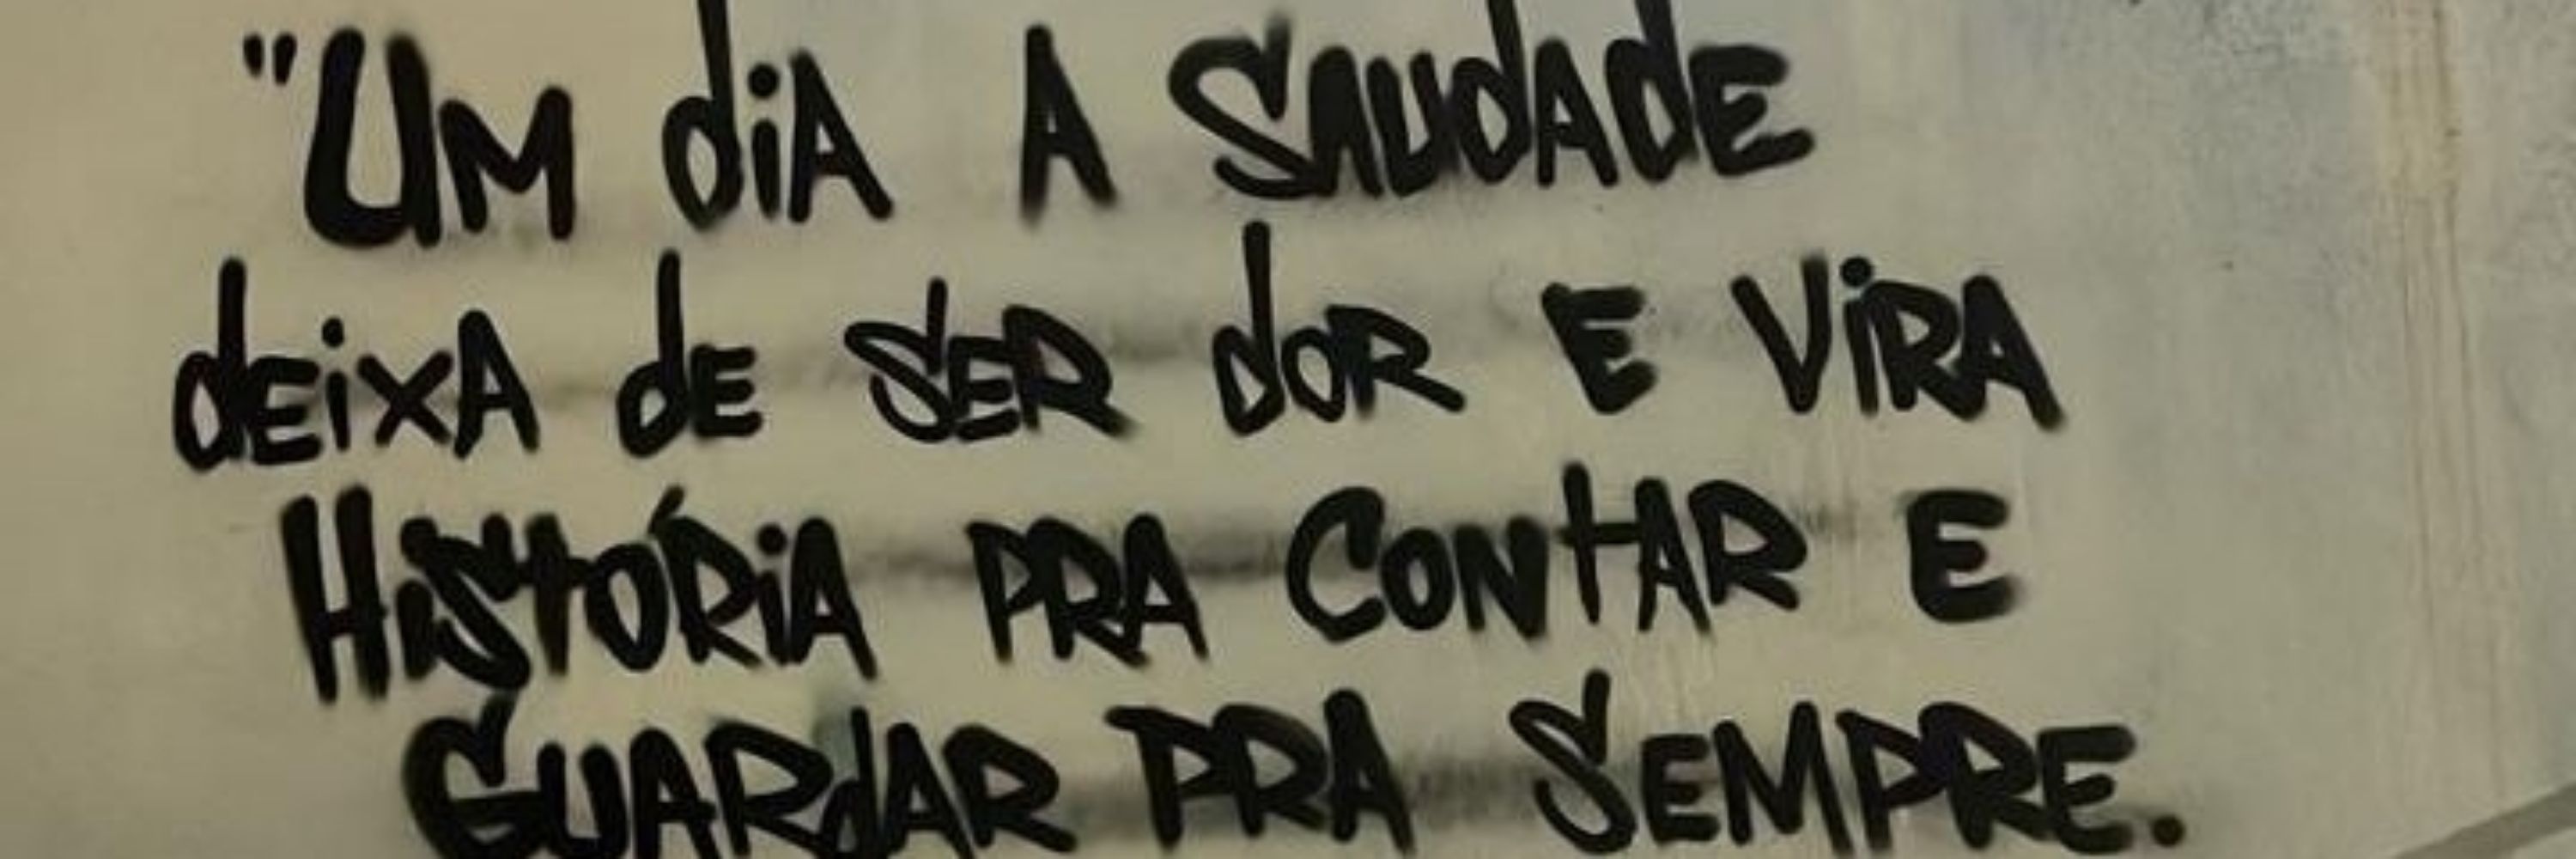 "UM diA A SAUdAdE
dEixA dE SER dOR E ViRA
HiSTÓRiA PRA CONTAR E
GUARdAR PRA SEMPRE.